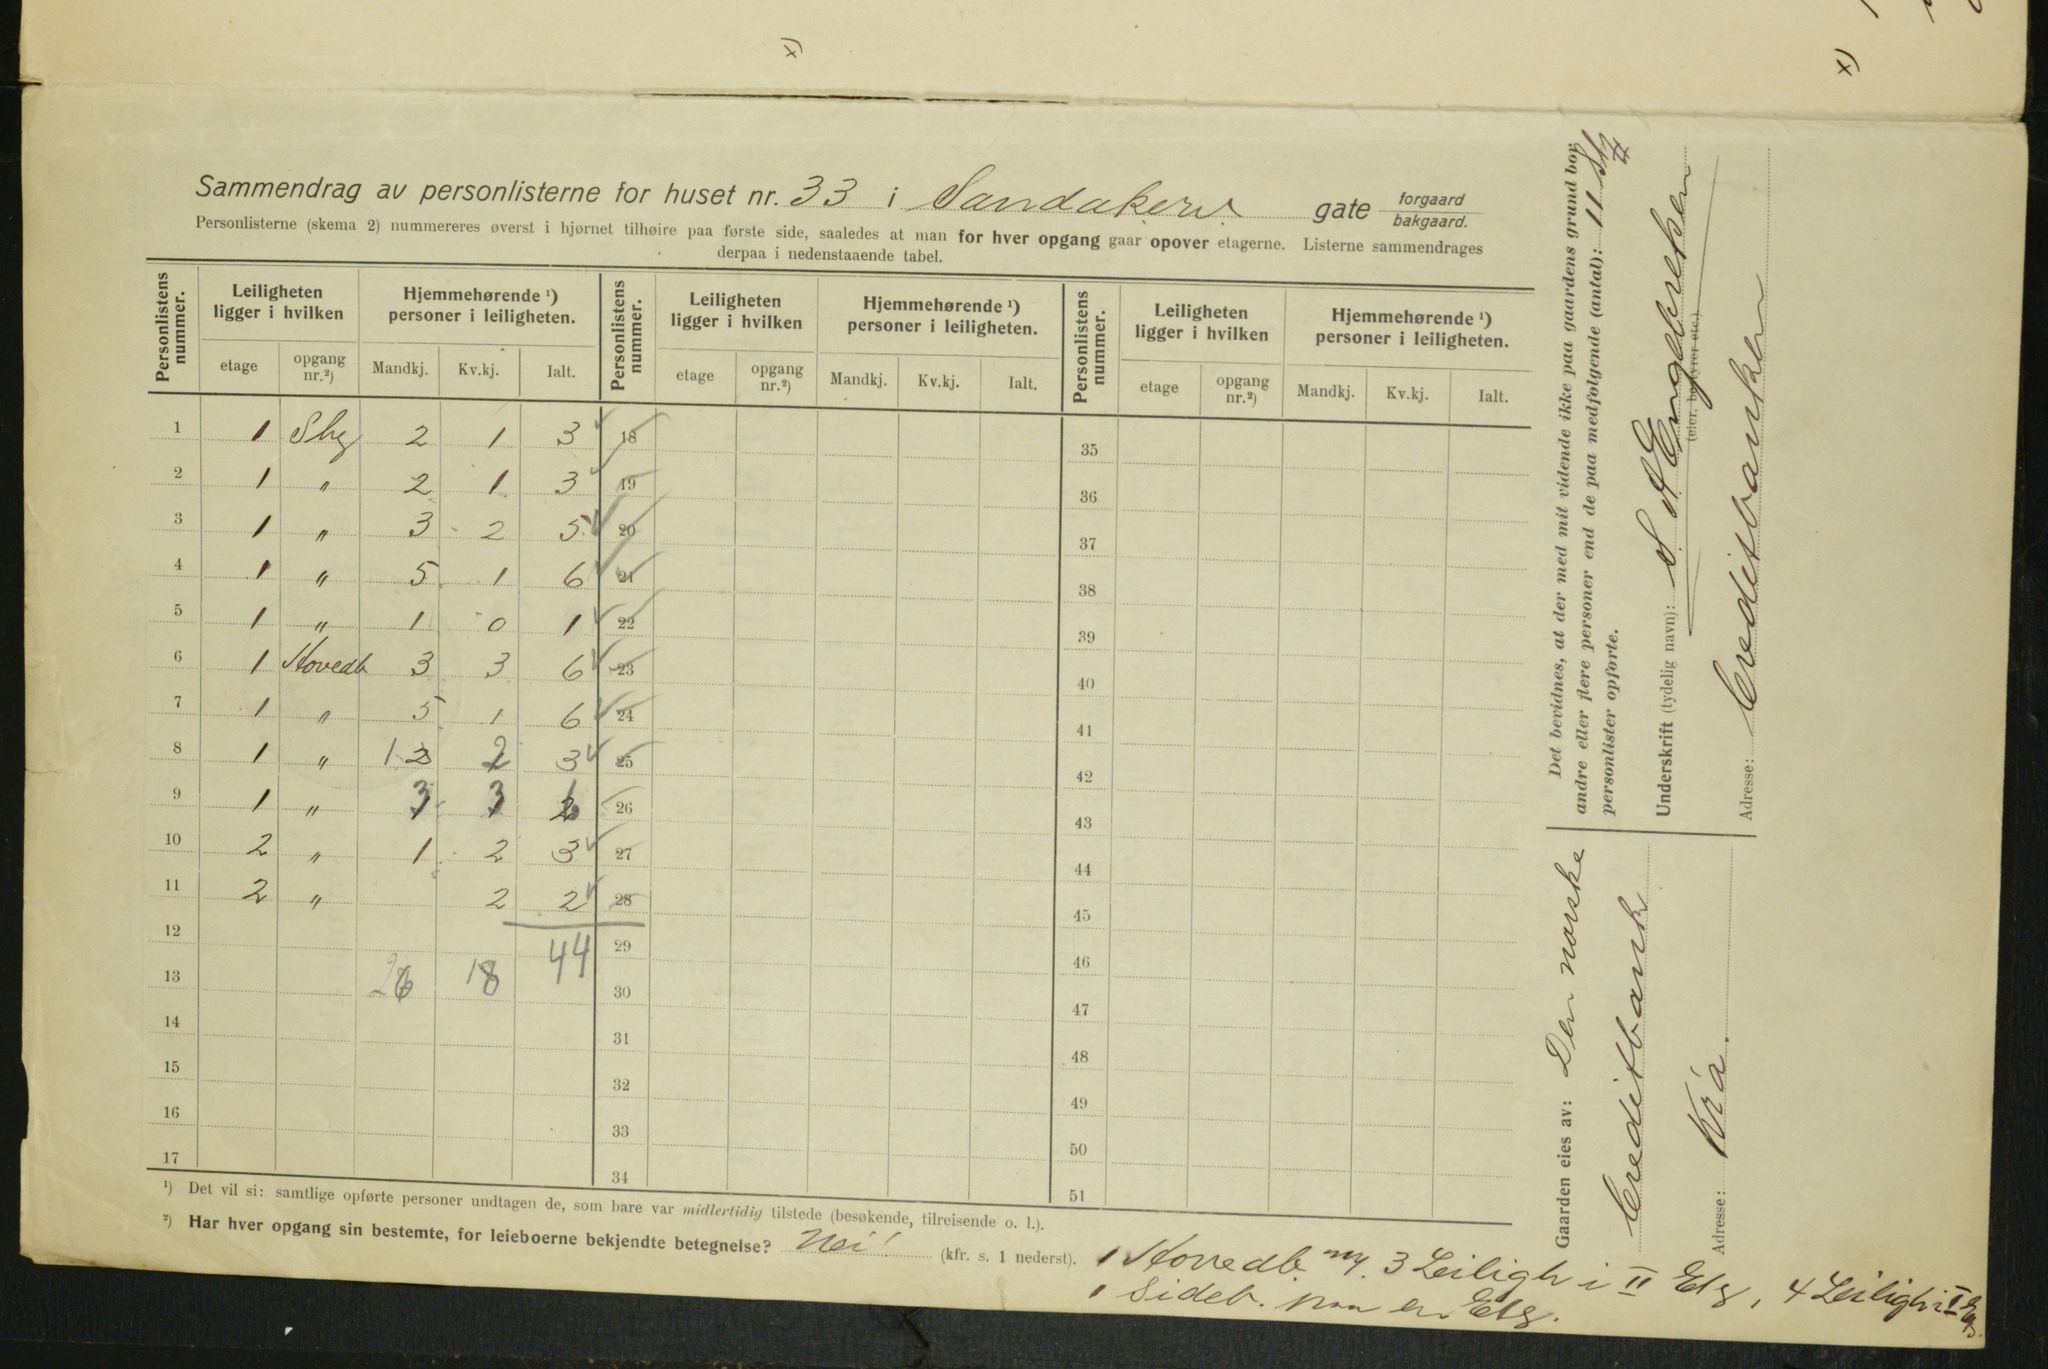 x)
x)
Sammendrag av personlisterne for huset nr. 33 i Sandakerv. gate forgaard bakgaard.
Personlisterne (skema 2) nummereres øverst i hjørnet tilhøire paa første side, saaledes at man for hver opgang gaar opover etagerne. Listerne sammendrages
derpaa i nedenstaaende tabel.
Personlistens nummer. Leiligheten ligger i hvilken Hjemmehørende ¹) personer i leiligheten. Personlistens nummer. Leiligheten ligger i hvilken Hjemmehørende ¹) personer i leiligheten. Personlistens nummer. Leiligheten ligger i hvilken Hjemmehørende ¹) personer i leiligheten.
etage opgang nr.²) Mandkj. Kv.kj. Ialt. etage opgang nr.²) Mandkj. Kv.kj. Ialt. etage opgang nr.²) Mandkj. Kv.kj. Ialt.
1 1 2 1 3 18 35
2 1 " 2 1 3 19 36
3 1 " 3 2 5 20 37
4 1 " 5 1 6 21 38
5 1 " 1 0 1 22 39
6 1 Hovedb 3 3 6 23 40
7 1 " 5 1 6 24 41
8 1 " 1 2 2 3 25 42
9 1 " 3 3 6 26 43
10 2 " 1 2 3 27 44
11 2 " 2 2 28 45
12 44 29 46
13 26 18 30 47
14 31 48
15 32 49
16 33 50
17 34 51
¹) Det vil si: samtlige opførte personer undtagen de, som bare var midlertidig tilstede (besøkende, tilreisende o. l.).
²) Har hver opgang sin bestemte, for leieboerne bekjendte betegnelse? Nei! (kfr. s. 1 nederst).
1 Hovedb 3 Leiligh i II Etg, 4 Leiligh i I Etg.
1 Sideb. paa en Etg.
Det bevidnes, at der med mit vidende ikke paa gaardens grund bor
andre eller flere personer end de paa medfølgende (antal): 11 Stk
personlister opførte.
Underskrift (tydelig navn): S. A. Engebretsen
(eier, bestyrer etc.)
Adresse: Creditbanken
Gaarden eies av: Den norske
Creditbank
Adresse: Kr.a.